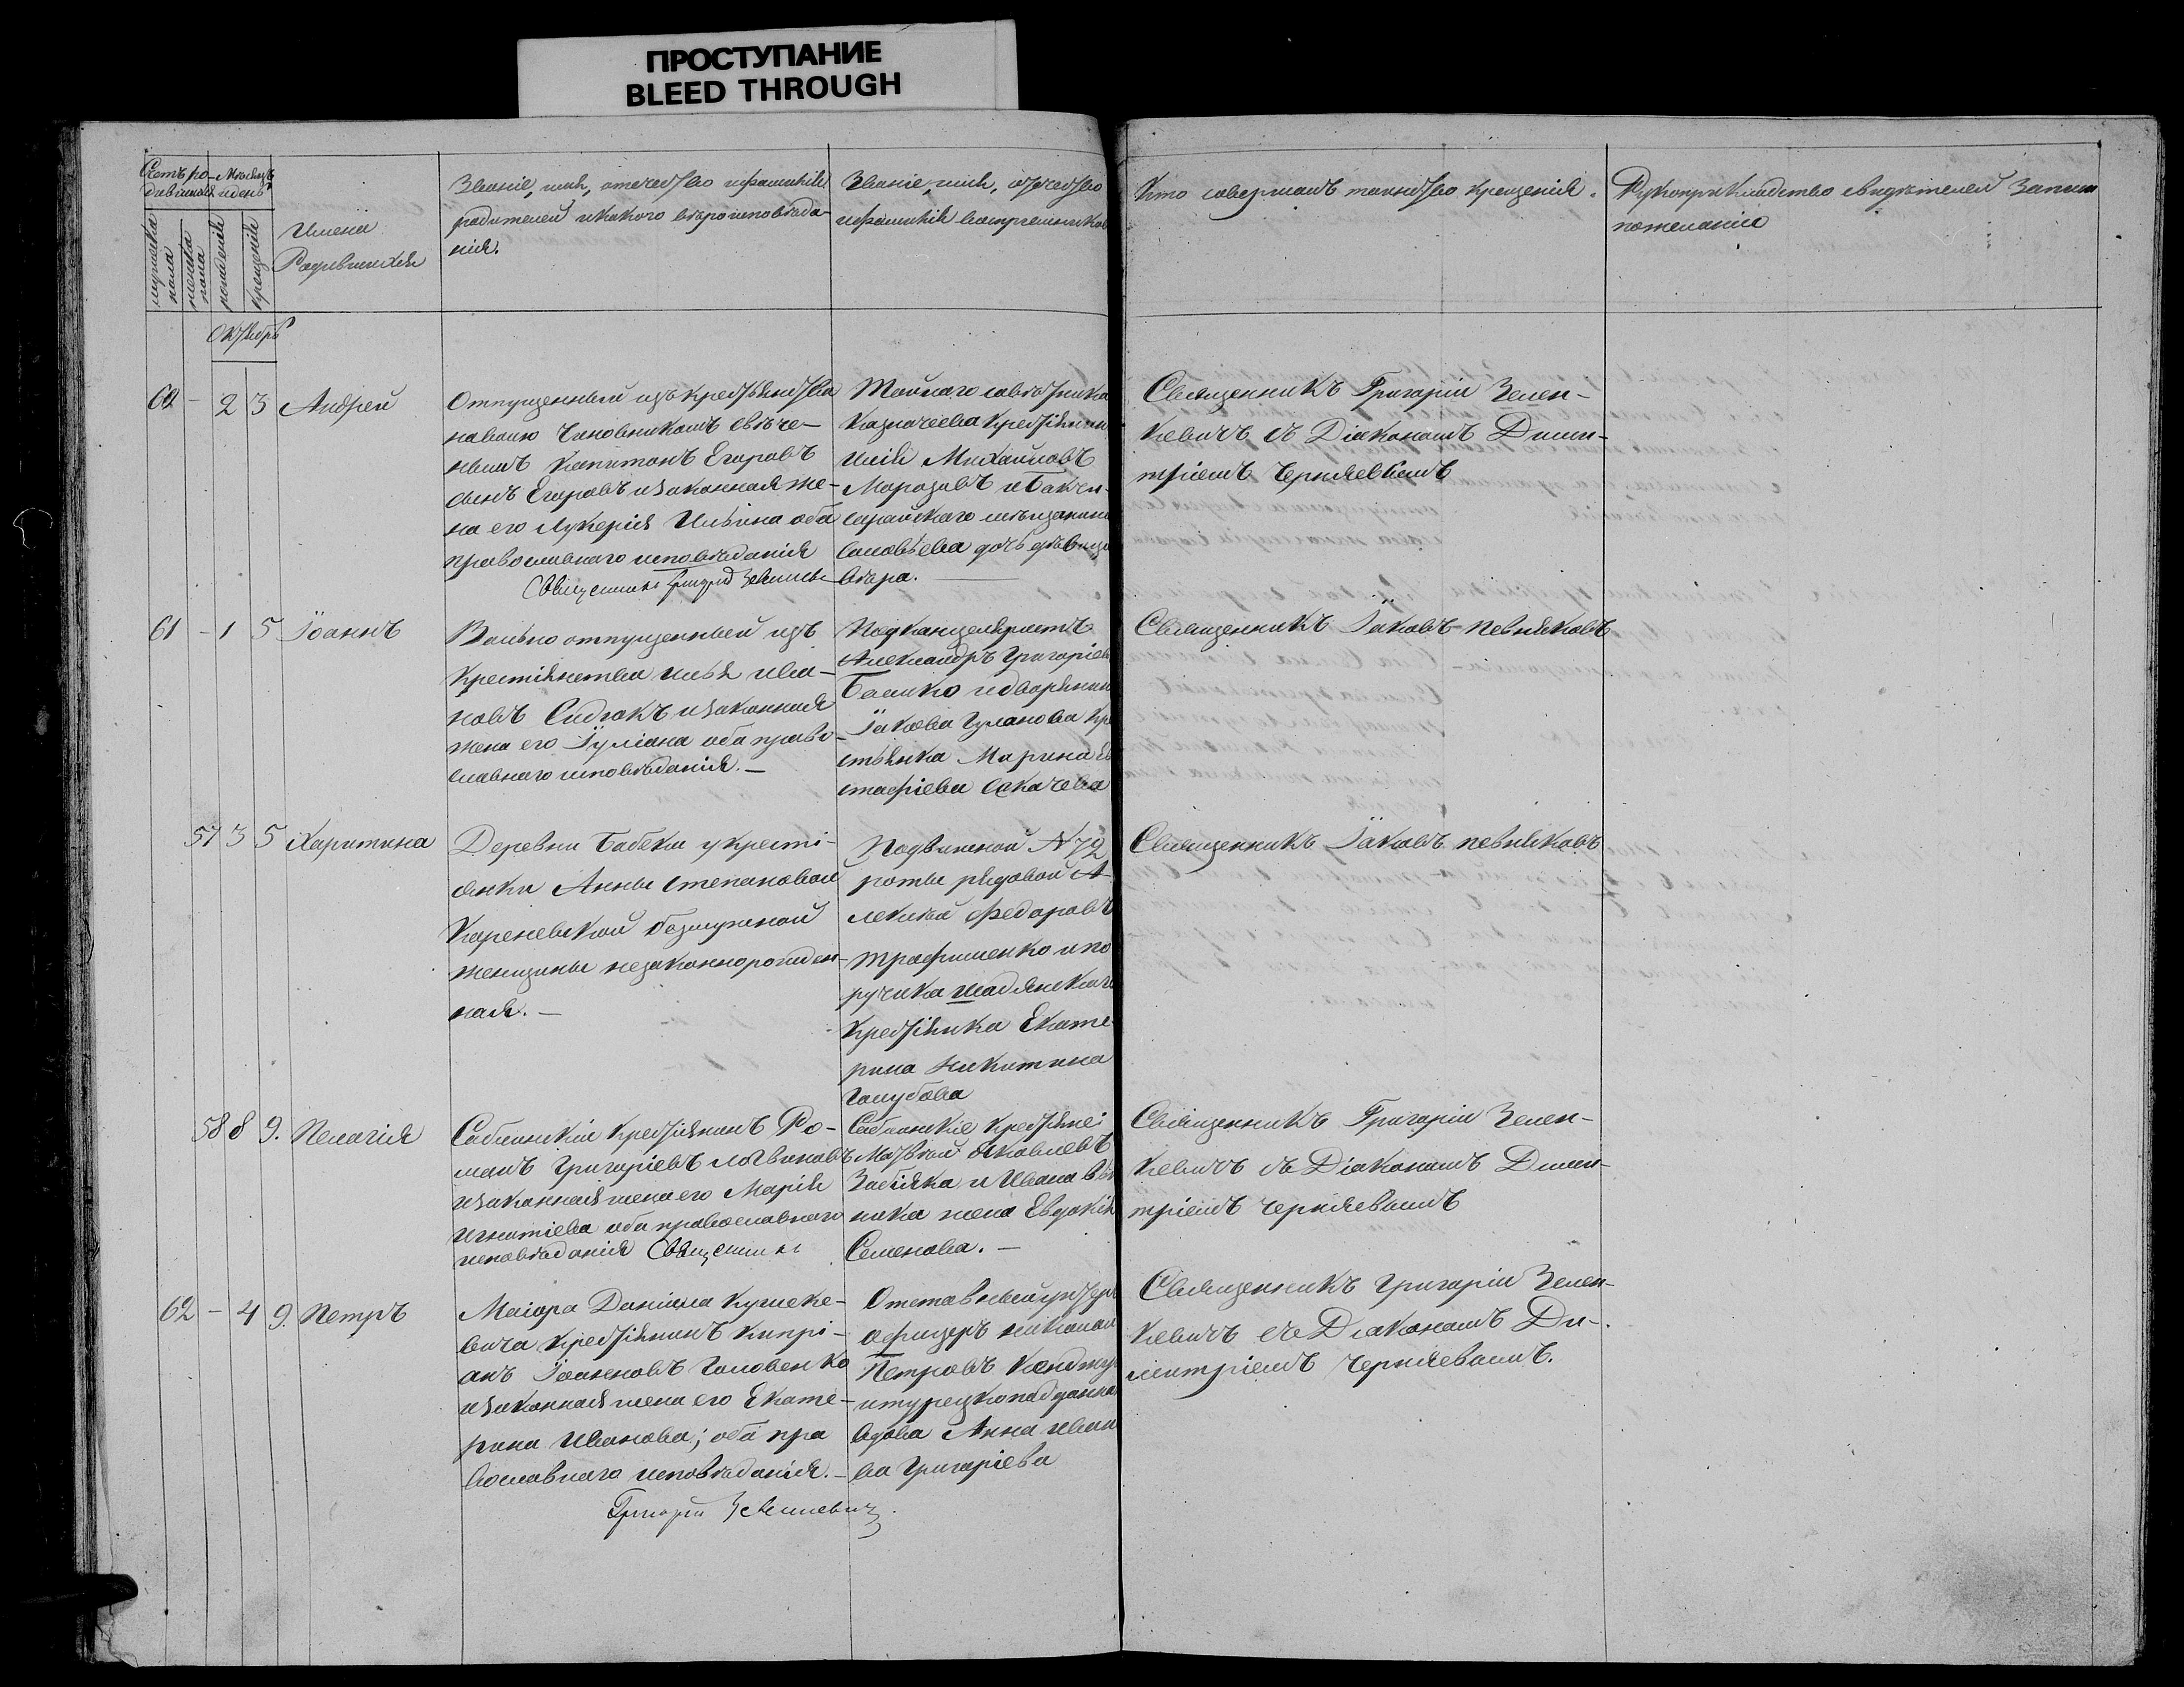 ПРОСТУПАНИЕ
BLEED THROUGH
Счетъ ро- Мѣсяцъ
дившихся и день
мужеска пола
женска пола
рожденія
крещенія
Имена
Родившихся
Званіе, имя, отчество и фамилія
родителей и какого вѣроисповѣда-
нія.
Званіе, имя, отчество
и фамилія воспріемниковъ
Кто совершалъ таинство крещенія.
Рукоприкладство свидѣтелей записи
по желанію
Октябрь
60 - 2 3 Андрей
Отпущенный изъ крестьянства
на волю Чиновникомъ
Капитонъ Егоровъ
сынъ Егоровъ и законная же-
на его Лукерія Ильина оба
православнаго исповѣданія
Священникъ
Тайнаго совѣтника
Казначеева крестьянинъ
Илія Михайловъ
Морозовъ и Бахчи-
сарайскаго мѣщанина
Соловьева дочь дѣвица
Вѣра.
Священникъ Григорій Зелен-
кевичъ съ Діакономъ Дими-
тріемъ Черняевымъ
61 - 1 5 Іоаннъ
Вольно отпущенный изъ
крестьянства Илья Ива-
новъ Сидгакъ и законная
жена его Іуліана оба право-
славнаго исповѣданія.-
Подканцеляристъ
Александръ Григоріевъ
Башко и дворянина
Іакова Гуланова кре
стьянка Марина Ев
стафіева Скачева
Священникъ Іаковъ Певняковъ
57 3 5 Харитина
Деревни Бабеки у крестi-
янки Анны Степановой
Кореневской безмужной
женщины незаконнорожден-
ная.-
Подвижной №72
роты рядовой А-
лексѣй Федоровъ
Трофименко и по
ручика Шадянскаго
крестьянка Екате-
рина Никитина
Голубова
Священникъ Іаковъ Певняковъ
58 8 9. Пелагія
Саблинскій крестьянинъ Ро-
манъ Григоріевъ Логвиновъ
и законная жена его Марія
Игнатіева оба православнаго
исповѣданія Священникъ
Саблинскіе крестьяне:
Матвѣй Яковлевъ
Забіяка и Ивана
жена Евдокія
Семенова.-
Священникъ Григорій Зелен-
кевичъ съ Діакономъ Дими-
тріемъ Черняевымъ
62 - 4 9. Петръ
Маіора Даніила Кушке-
вича крестьянинъ Кипрі-
анъ Іоанновъ Головенко
и законная жена его Екате-
рина Иванова; оба пра
вославнаго исповѣданія.-
Григорій Зеленкевичъ
Отставный унтеръ
офицеръ Николай
Петровъ
и турецкоподданная
вдова Анна Ивано
ва Григоріева
Священникъ Григорій Зелен-
кевичъ съ Діакономъ Ди-
митріемъ Черняевымъ.